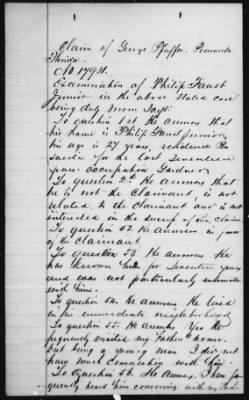 Claim of George Pfeiffer Pensacola
Florida
No 17931.
Examination of Philip Faust
Junior in the above Stated case
being duly sworn Says.
To question 1st He answers that
his name is Philip Faust Junior,
his age is 27 years, residence Pen
sacola for the last Seventeen
years. occupation Gardner
To question 2d He answers that
he is not the Claimant is not
related to the Claimant and is not
interested in the success of the claim.
To question 52 He answers in favor
of the Claimant
To question 53 He answers He
has known him for Seventeen years
and was not particularly intimate
with him.
To question 54. He answers He lived
in his immediate neighborhood
To question 55. He answers Yes he
frequently visited my Father's house.
but being a young man I did not
pay much Conversation with him.
To question 56. He Answers. I have fre
quently heard him conversing with my Father